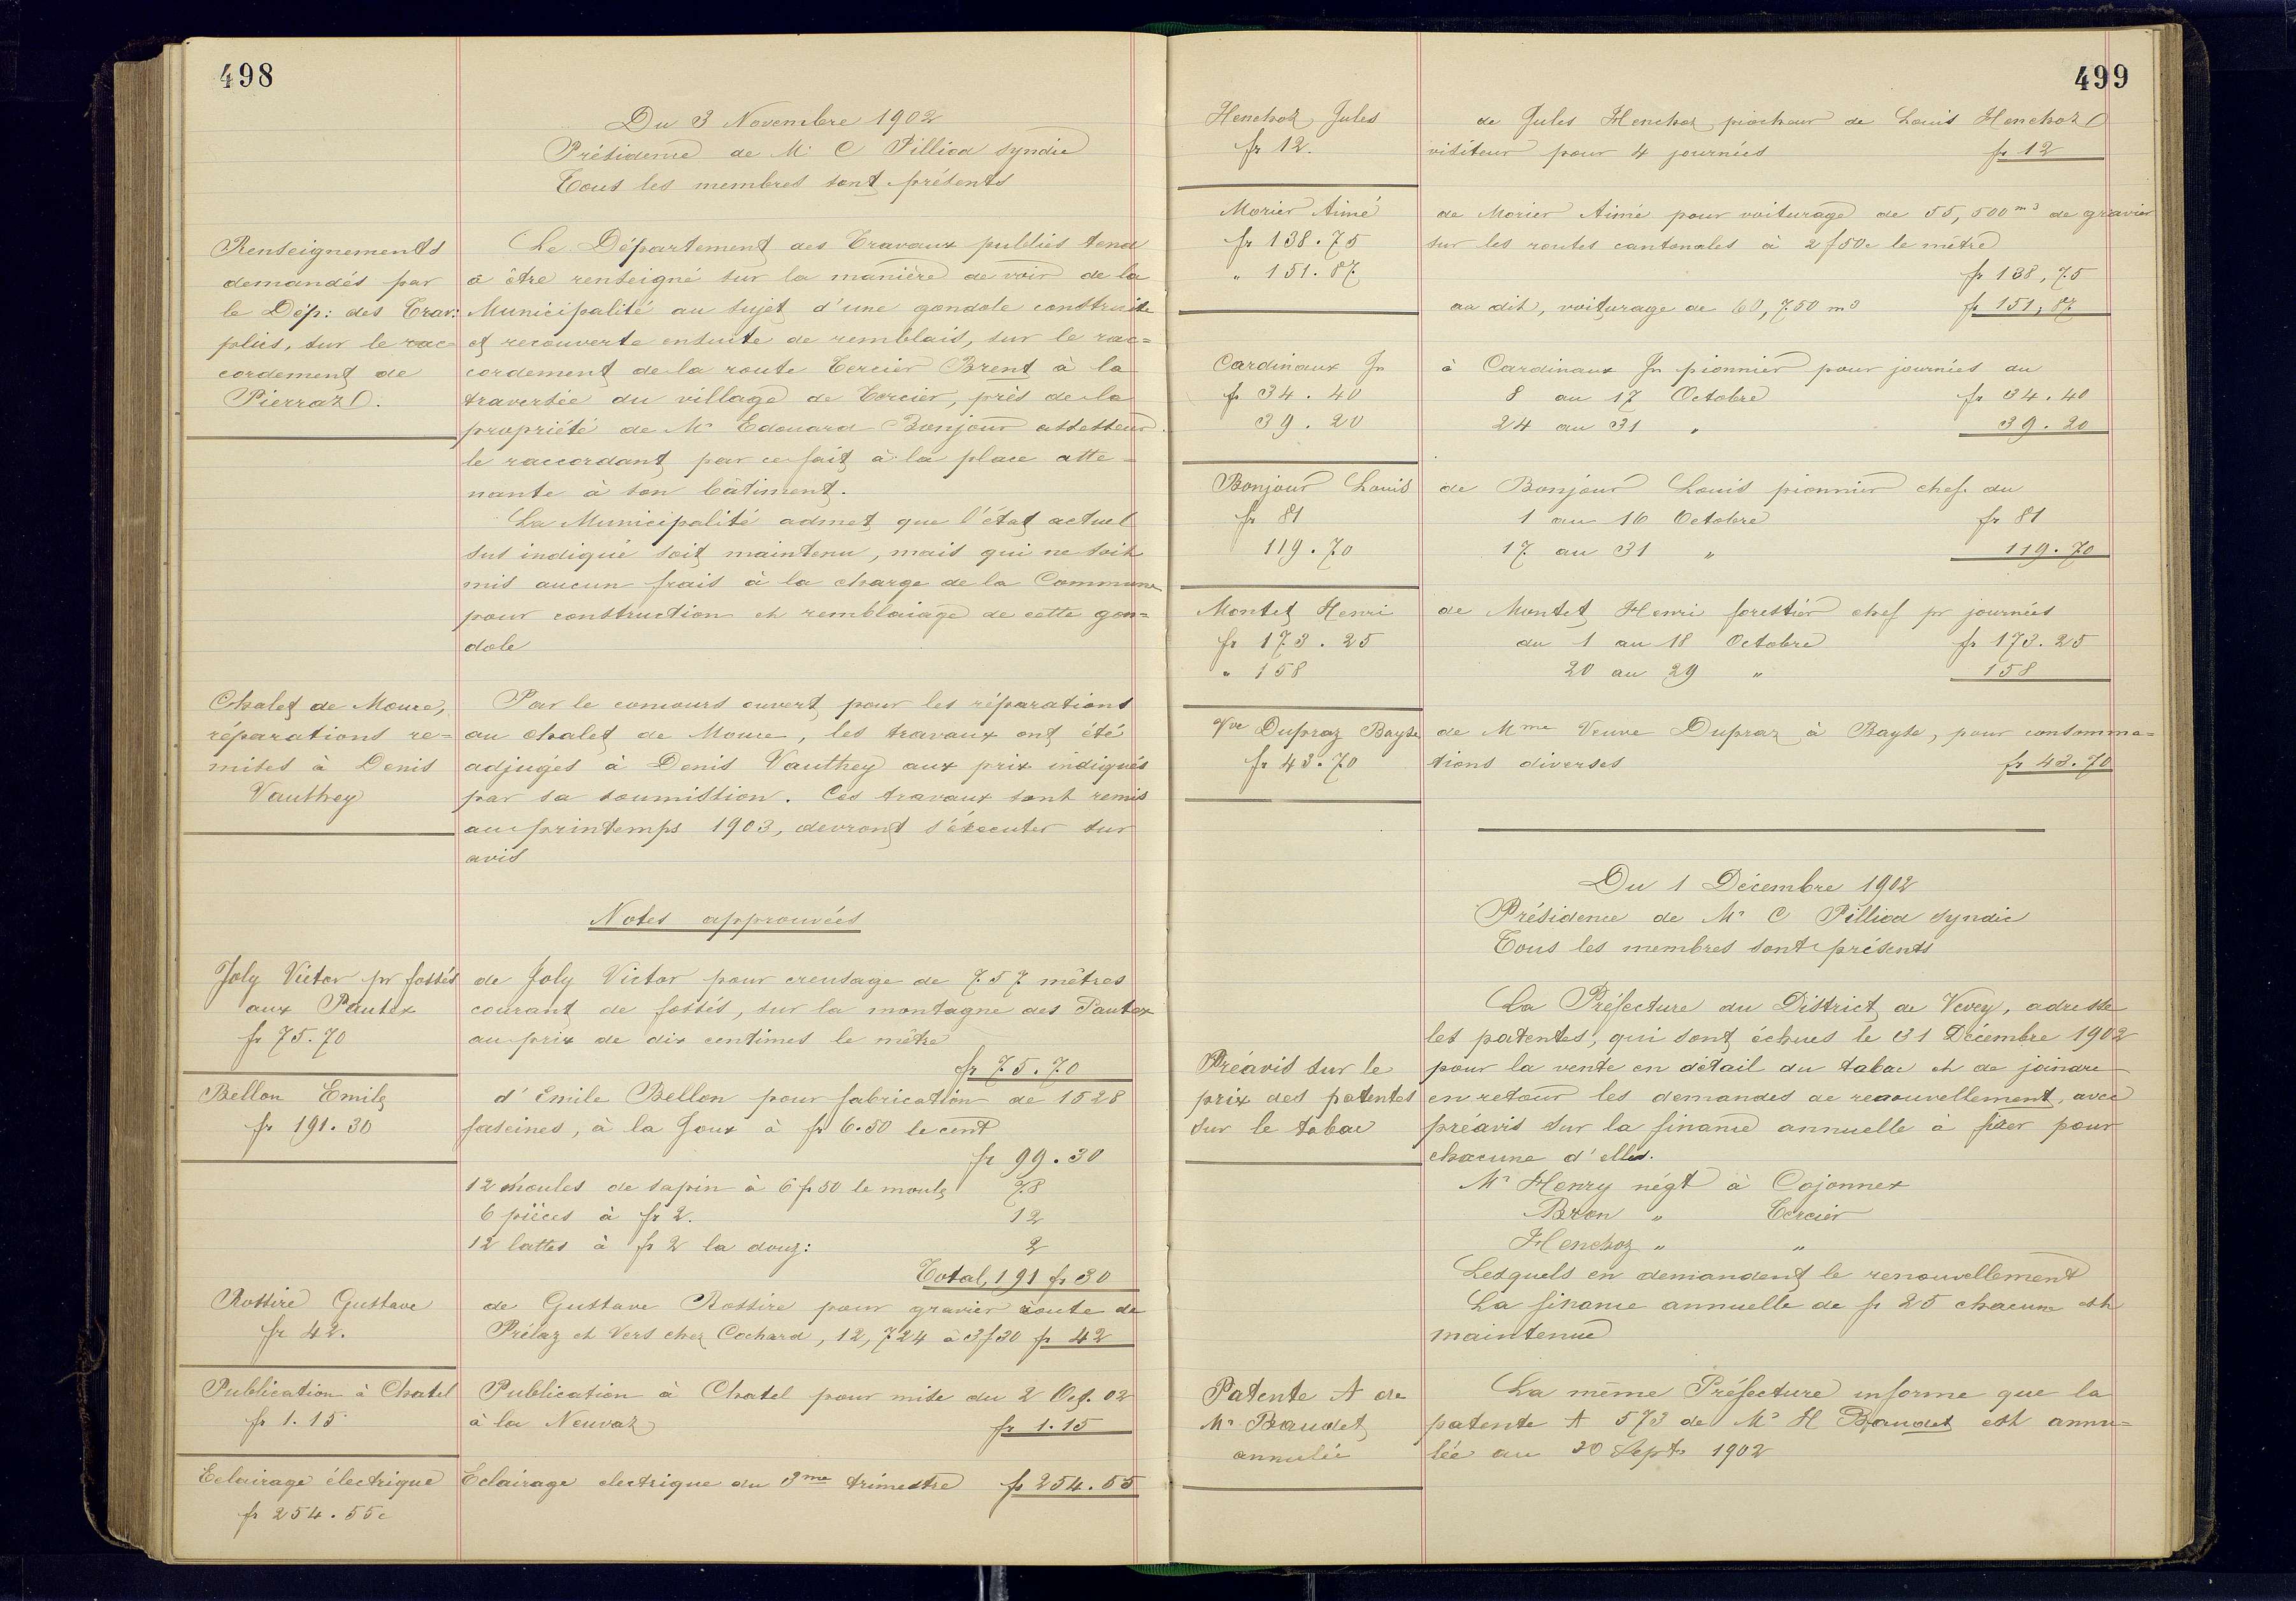 498
Du 3 Novembre 1902
Présidence de Mr C Pilliod syndic
Tous les membres sont présents
Renseignements
demandés par
le Dép: des Trav:
plics, sur le rac-
cordement de
Pierraz.
Le Département des Travaux publics tend
à être renseigné sur la manière de voir de la
Municipalité au sujet d'une gondole construite
et recouverte ensuite de remblais, sur le rac=
cordement de la route Tercier Brent à la
traversée du village de Tercier, près de la
propriété de Mr Edouard Bonjour assesseur
le raccordant par ce fait à la place atte-
nante à son bâtiment.
La Municipalité admet que l'état actuel
sus indiqué soit maintenu, mais qui ne soit
mis aucun frais à la charge de la Commune
pour construction et remblaiage de cette gon=
dole
Chalet de Moure,
réparations re=
mises à Denis
Vauthey
Par le concours ouvert pour les réparations
au chalet de Moure, les travaux ont été
adjugés à Denis Vauthey aux prix indiqués
par sa soumission. Ces travaux sont remis
au printemps 1903, devront s'éxecuter sur
avis
Notes approuvées
Joly Victor pr fossés
aux Pautex
fr 75.70
de Joly Victor pour creusage de 757 mètres
courant de fossés, sur la montagne des Pautex
au prix de dix centimes le mètre
fr 75.70
Bellon Emile
fr 191.30
d'Emile Bellon pour fabrication de 1528
fascines, à la Joux à fr 6.50 le cent
fr 99.30
12 moules de sapin à 6 fr 50 le moule 78
6 pièces à fr 2. 12
12 lattes à fr 2 la douz: 2
Total, 191 fr 30
Rossire Gustave
fr 42.
de Gustave Rossire pour gravier route de
Prélaz et Vers chez Cochard, 12,724 à 3f30 fr 42
Publication à Chatel
fr 1.15
Publication à Chatel pour mise du 2 Oct. 02
à la Neuvaz fr 1.15
Eclairage électrique
fr 254.55c
Eclairage electrique du 3me trimestre fr 254.55
499
Henchoz Jules
fr 12.
de Jules Henchoz piocheur de Louis Henchoz
visiteur pour 4 journées fr 12
Morier Aimé
fr 138.75
" 151.87
de Morier Aimé pour voiturage de 55,500 m3 de gravier
sur les routes cantonales à 2f50c le mètre
fr 138,75
au dit, voiturage de 60,750 m3 fr 151,87
Cardinaux Jn
fr 34.40
39.20
à Cardinaux Jn pionnier pour journées au
8 au 17 Octobre fr 34.40
24 au 31 " 39.20
Bonjour Louis
fr 81
119.70
de Bonjour Louis pionnier chef du
1 au 16 Octobre fr 81
17 au 31 " 119.70
Montet Henri
fr 173.25
" 158
de Montet Henri forestier chef pr journées
du 1 au 18 Octobre fr 173.25
20 au 29 " 158
Vve Dupraz Bayse
fr 43.70
de Mme Veuve Dupraz à Bayse, pour consomma=
tions diverses fr 43.70
Du 1 Décembre 1902
Présidence de Mr C Pilliod syndic
Tous les membres sont présents
Préavis sur le
prix des patentes
sur le tabac
La Préfecture du District de Vevey, adresse
les patentes, qui sont échues le 31 Décembre 1902
pour la vente en détail du tabac et de joindre
en retour les demandes de renouvellement, avec
préavis sur la finance annuelle à fixer pour
chacune d'elles.
Mr Henry négt à Cojonnex
Bron " Tercier
Henchoz " "
Lesquels en demandent le renouvellement
La finance annuelle de fr 25 chacune est
maintenue
Patente A de
Mr Baudet
annulée
La même Préfecture informe que la
patente A 573 de Mr H Baudet est annu=
lée au 30 Septe 1902